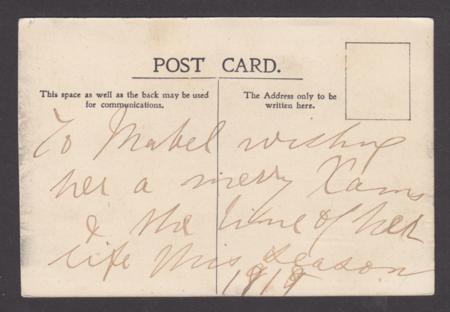 POST CARD.
This space as well as the back may be used
for communications.
The Address only to be
written here.
To Mabel wishing
her a merry Xams
& the time of her
life this season
1919